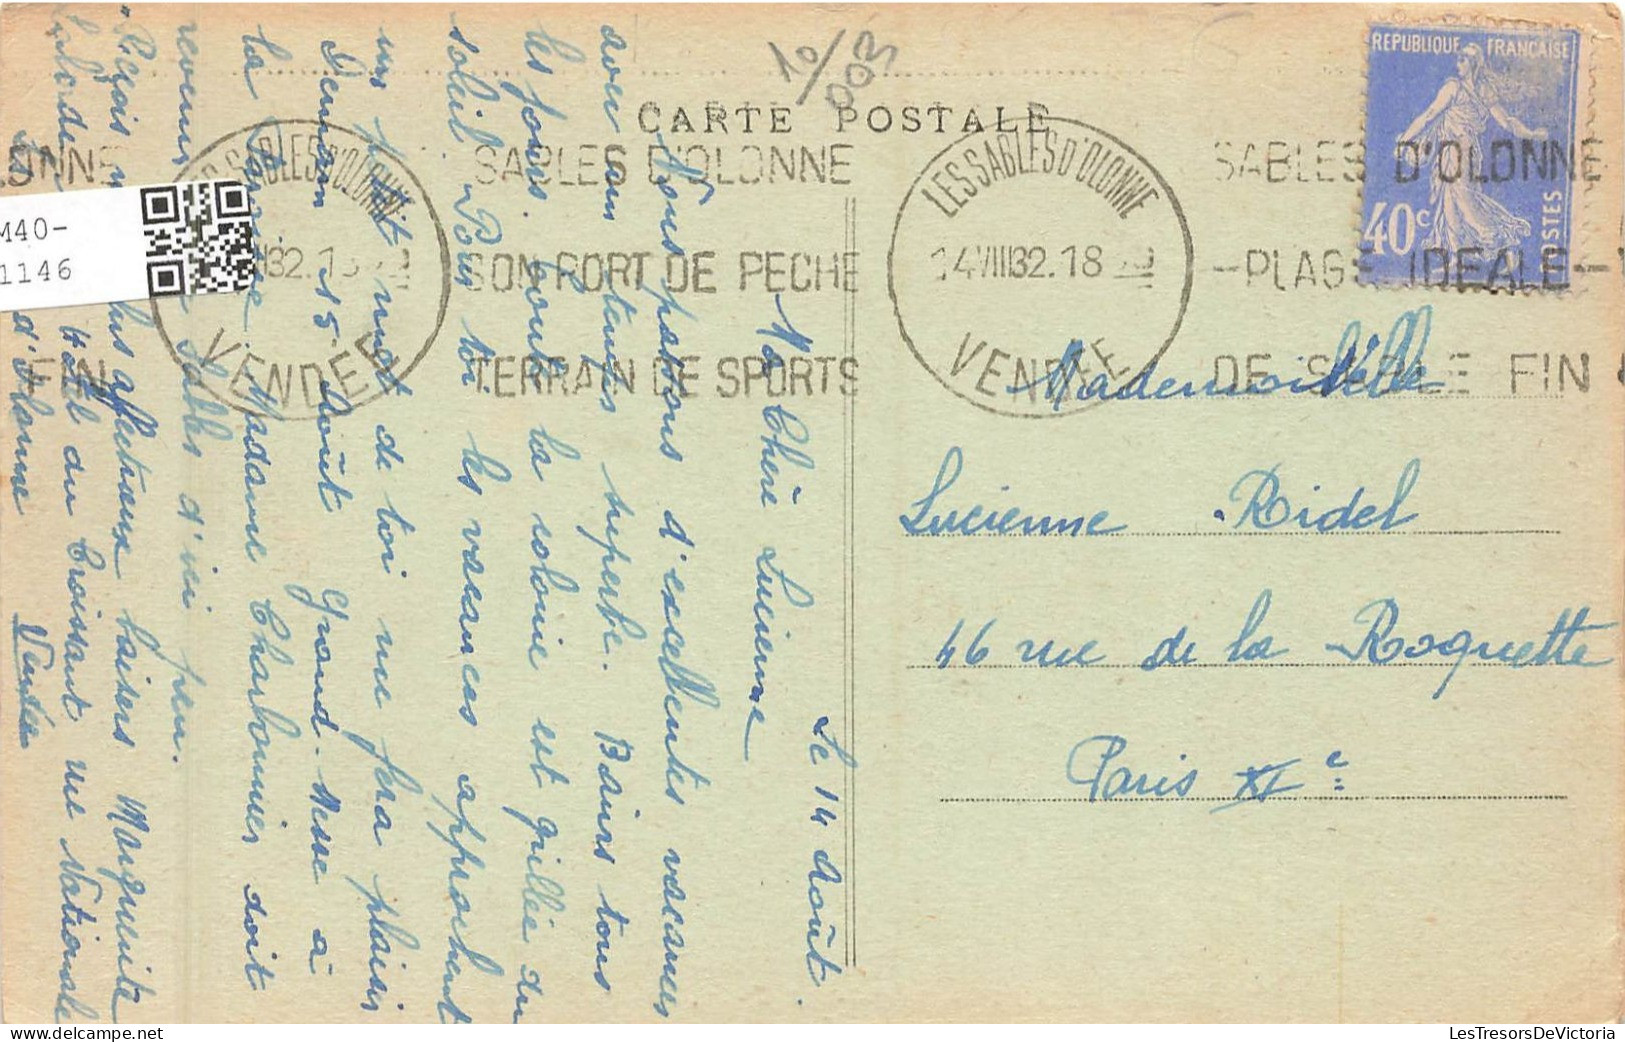 CARTE POSTALE
10/003
REPUBLIQUE FRANÇAISE
40c
POSTES
LES SABLES D'OLONNE
14 VIII 32. 18
VENDEE
SABLES D'OLONNE
SON PORT DE PECHE
TERRAIN DE SPORTS
LES SABLES D'OLONNE
14 VIII 32. 18
VENDEE
SABLES D'OLONNE
-PLAGE IDEALE-
DE SABLE FIN
LONNE
FIN
M40-
1146
Mademoiselle
Lucienne Ridel
46 rue de la Roquette
Paris XIe
Le 14 Août.
Ma Chère Lucienne
Nous passons d'excellentes vacances
avec un temps superbe. Bains tous
les jours. Toute la colonie est grillée du
soleil. Pour toi les vacances approchent
un petit mot de toi me fera plaisir
Demain 15 Août Grand-Messe à
la Madame Charbonnier doit
revenir Sables d'ici peu.
Reçois plus affectueux baisers Marguerite
du Croissant rue Nationale
d'Olonne Vendée
LesTresorsDeVictoria